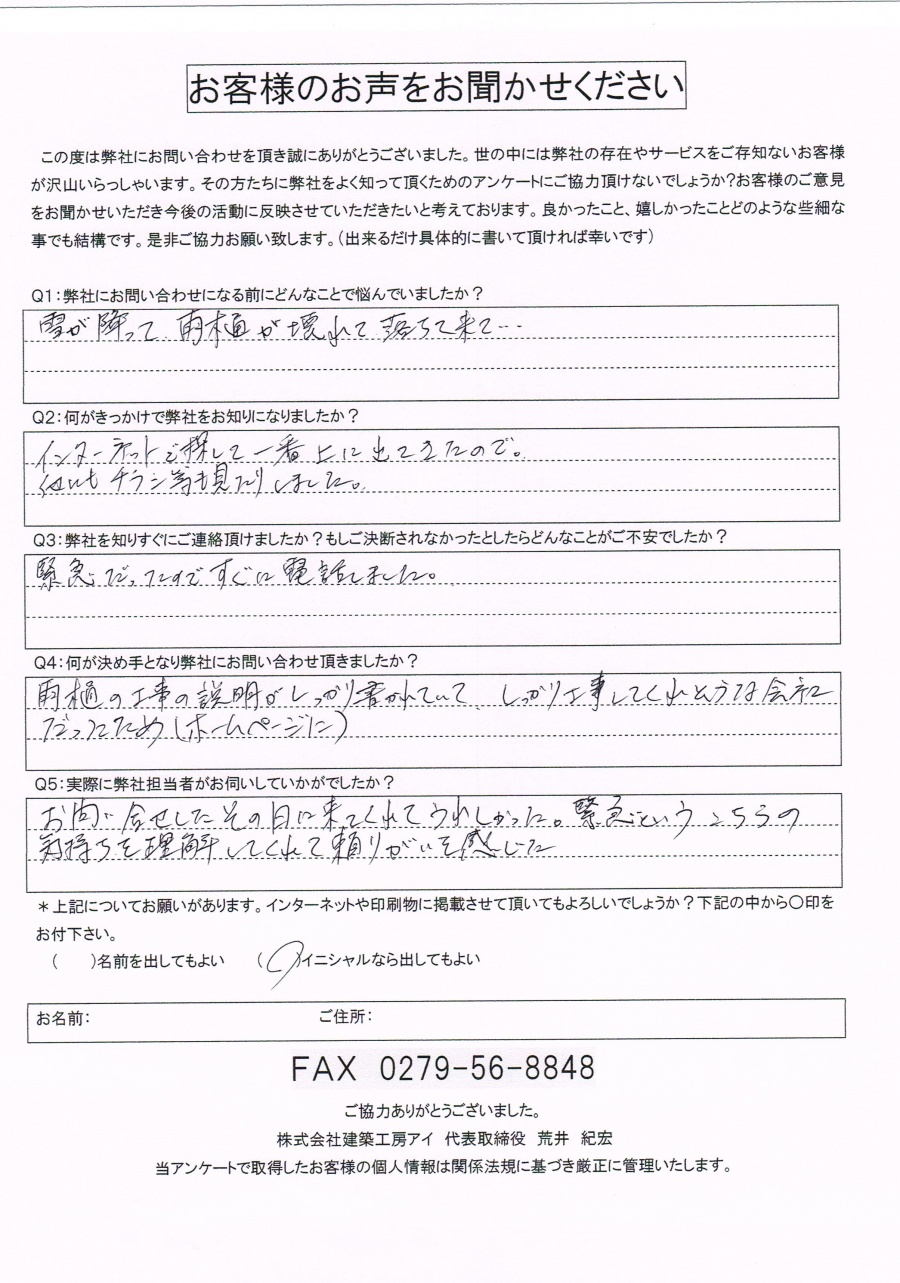 お客様のお声をお聞かせください
この度は弊社にお問い合わせを頂き誠にありがとうございました。世の中には弊社の存在やサービスをご存知ないお客様
が沢山いらっしゃいます。その方たちに弊社をよく知って頂くためのアンケートにご協力頂けないでしょうか?お客様のご意見
をお聞かせいただき今後の活動に反映させていただきたいと考えております。良かったこと、嬉しかったことどのような些細な
事でも結構です。是非ご協力お願い致します。(出来るだけ具体的に書いて頂ければ幸いです)
Q1:弊社にお問い合わせになる前にどんなことで悩んでいましたか?
雪が降って、雨樋が壊れて落ちて来て…
Q2:何がきっかけで弊社をお知りになりましたか?
インターネットで探して一番上に出てきたので。
他にもチラシ等も見たりしました。
Q3:弊社を知りすぐにご連絡頂けましたか?もしご決断されなかったとしたらどんなことがご不安でしたか?
緊急だったのですぐに電話しました。
Q4:何が決め手となり弊社にお問い合わせ頂きましたか?
雨樋の工事の説明がしっかり書かれていて、しっかり工事してくれそうな会社
だったため(ホームページに)
Q5:実際に弊社担当者がお伺いしていかがでしたか?
お問い合せしたその日に来てくれてうれしかった。緊急というこちらの
気持ちを理解してくれて頼りがいを感じた
*上記についてお願いがあります。インターネットや印刷物に掲載させて頂いてもよろしいでしょうか?下記の中から〇印を
お付下さい。
( )名前を出してもよい (○)イニシャルなら出してもよい
お名前: ご住所:
FAX 0279-56-8848
ご協力ありがとうございました。
株式会社建築工房アイ 代表取締役 荒井 紀宏
当アンケートで取得したお客様の個人情報は関係法規に基づき厳正に管理いたします。